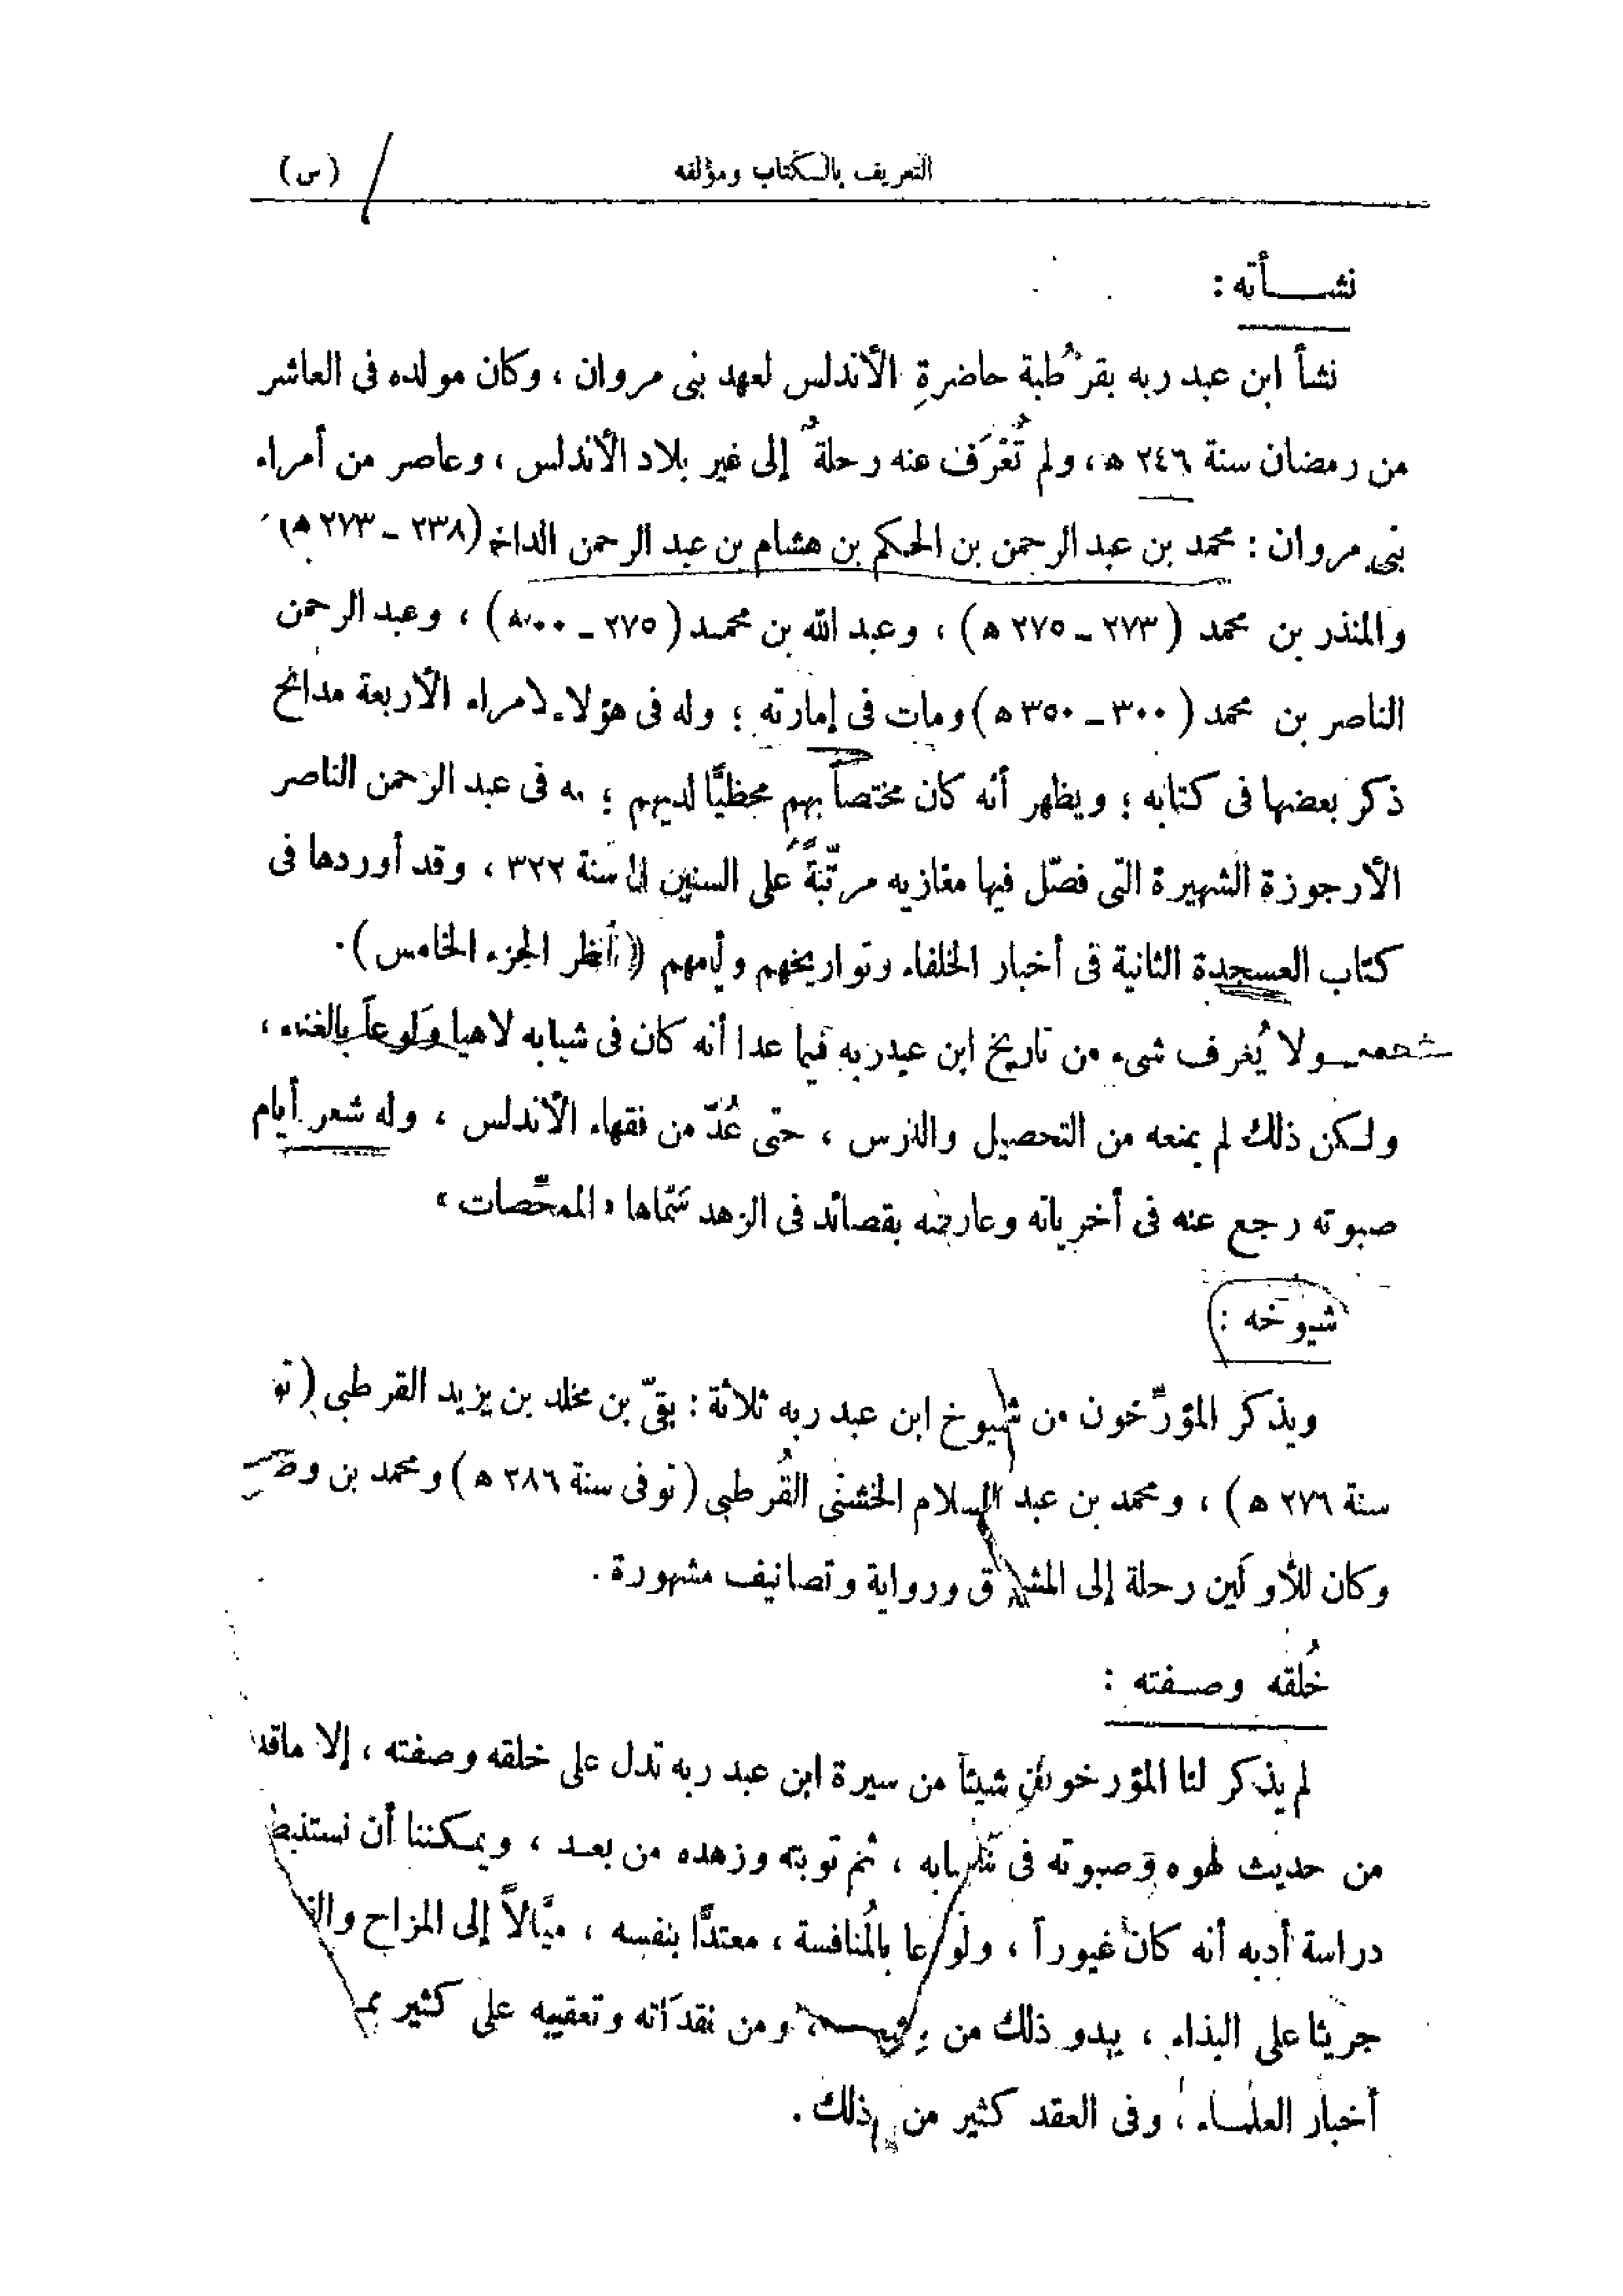 التعريف بالكتاب ومؤلفه (س)
نشأته :
نشأ ابن عبد ربه بقرْطُبة حاضرةِ الأندلس لعهد بنى مروان ، وكان مولده فى العاشر
من رمضان سنة ٢٤٦ هـ ، ولم تُعْرَف عنه رحلةٌ إلى غير بلاد الأندلس ، وعاصر من أمراء
بنى مروان : محمد بن عبد الرحمن بن الحكم بن هشام بن عبد الرحمن (٢٣٨ – ٢٧٣ هـ)
والمنذر بن محمد (٢٧٣ – ٢٧٥ هـ) ، وعبد الله بن محمد (٢٧٥ – ) ، وعبد الرحمن
الناصر بن محمد (٣٠٠ – ٣٥٠ هـ) ومات فى إمارته ؛ وله فى هؤلاء الأمراء الأربعة مدائح
ذكر بعضها فى كتابه ؛ ويظهر أنه كان مختصاً بهم محظيًّا لديهم ؛ فى عبد الرحمن الناصر
الأرجوزة الشهيرة التى فصّل فيها مغازيه مرتّبةً على السنين سنة ٣٢٢ ، وقد أوردها فى
كتاب العسجدة الثانية فى أخبار الخلفاء وتواريخهم وأيامهم (أنظر الجزء الخامس) .
ولا يُعرف شىء من تاريخ ابن عبدربه فيما عدا أنه كان فى شبابه لاهيا وَلوعاً بالغناء ،
ولكن ذلك لم يمنعه من التحصيل والدرس ، حتى عُدّ من فقهاء الأندلس ، وله شعر أيام
صبوته رجع عنه فى أخرياته وعارضه بقصائد فى الزهد سَمّاها « الممحِّصات »
شيوخه :
ويذكر المؤرِّخون من شيوخ ابن عبد ربه ثلاثة : بقىّ بن مخلد بن يزيد القرطبى (
سنة ٢٧٦ هـ) ، ومحمد بن عبد السلام الخشنى القُرطبى (توفى سنة ٢٨٦ هـ) ومحمد بن
وكان للأولَين رحلة إلى المشرق ورواية وتصانيف مشهورة .
خُلقه وصفته :
لم يذكر لنا المؤرخون شيئاً من سيرة ابن عبد ربه تدل على خلقه وصفته ، إلا ماقد
من حديث لهوه وصبوته فى شبابه ، ثم توبته وزهده من بعد ، ويمكننا أن نستنبط
دراسة أدبه أنه كان غيوراً ، ولوعا بالمُنافسة ، معتدًّا بنفسه ، ميَّالاً إلى المزاح
جريئا على البذاء ، يبدو ذلك من ومن نقداته وتعقيبه على كثير
أخبار العلماء ، وفى العقد كثير من ذلك .